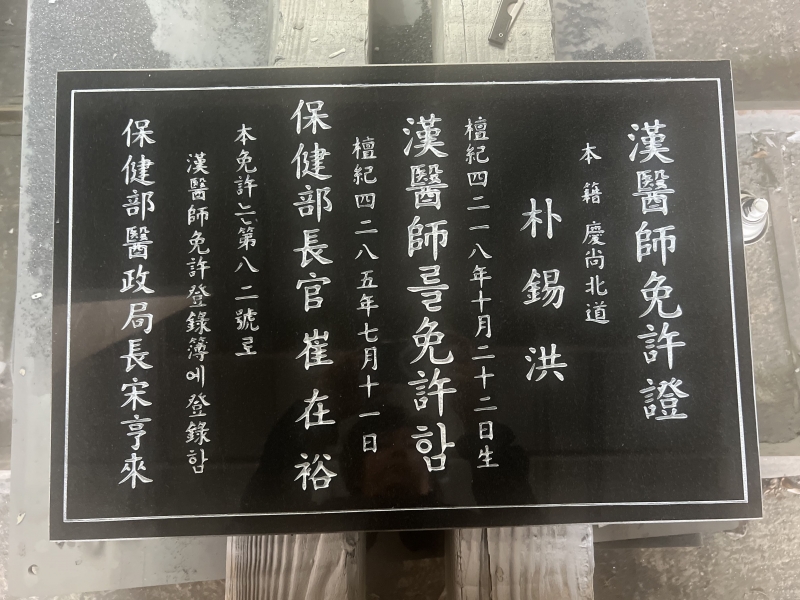 漢醫師免許證
本籍 慶尚北道
朴錫洪
檀紀四二一八年十月二十二日生
漢醫師를免許함
檀紀四二八五年七月十一日
保健部長官 崔在裕
本免許는第八二號로
漢醫師免許登錄簿에登錄함
保健部醫政局長宋亨來